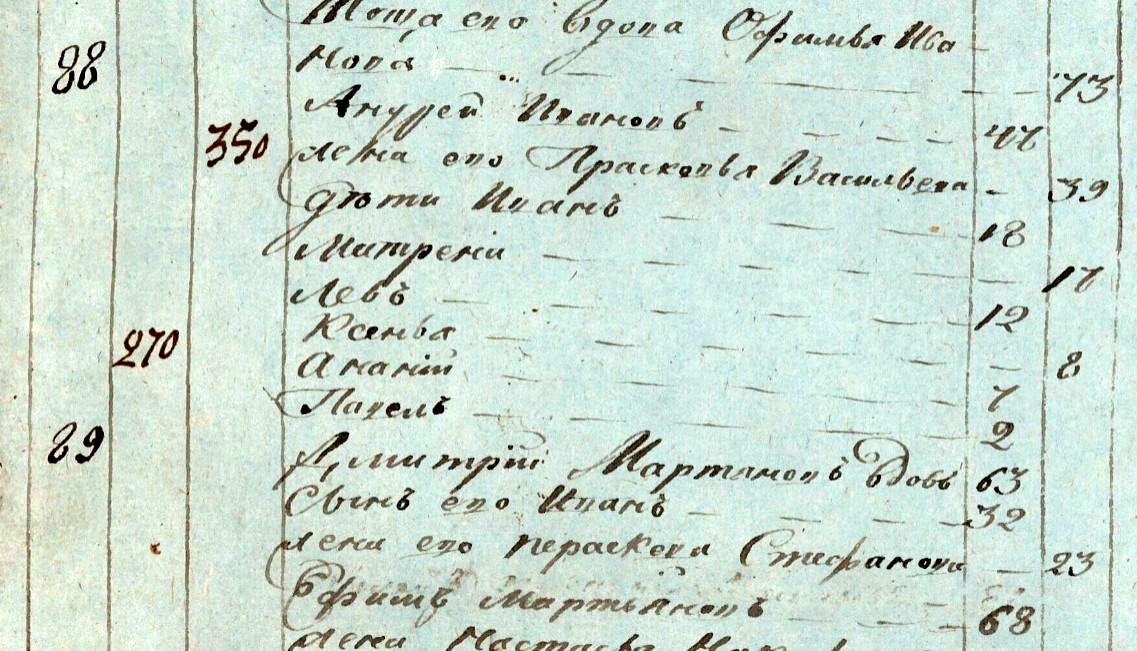 его вдова Офимья Ива
88 нова 73
Андрей Ивановъ 47
350 жена его Прасковья Васильева 39
дѣти Иванъ 18
Митрени 17
Левъ 12
Ксенья 8
270 Ананiй 7
Павелъ 2
89 Дмитрiй Мартяновъ вдовъ 63
сынъ его Иванъ 32
жена его Параскеви Стефанова 23
Ефимъ Мартьяновъ 68
жена Настасья